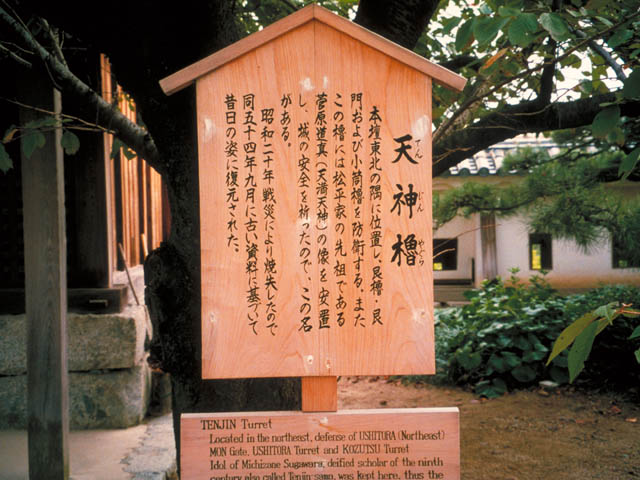 天神櫓
てんじんやぐら
本壇東北の隅に位置し、艮櫓・艮
門および小筒櫓を防衛する。また
この櫓には松平家の先祖である
菅原道真（天満天神）の像を安置
し、城の安全を祈ったので、この名
がある。
昭和二十年戦災により焼失したので
同五十四年九月に古い資料に基づいて
昔日の姿に復元された。
TENJIN Turret
Located in the northeast, defense of USHITORA (Northeast)
MON Gate, USHITORA Turret and KOZUTSU Turret
Idol of Michizane Sugawara, deified scholar of the ninth
century also called Tenjin sama, was kept here, thus the